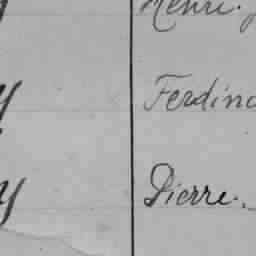 Henri.
y
Ferdinc
y
Pierre.